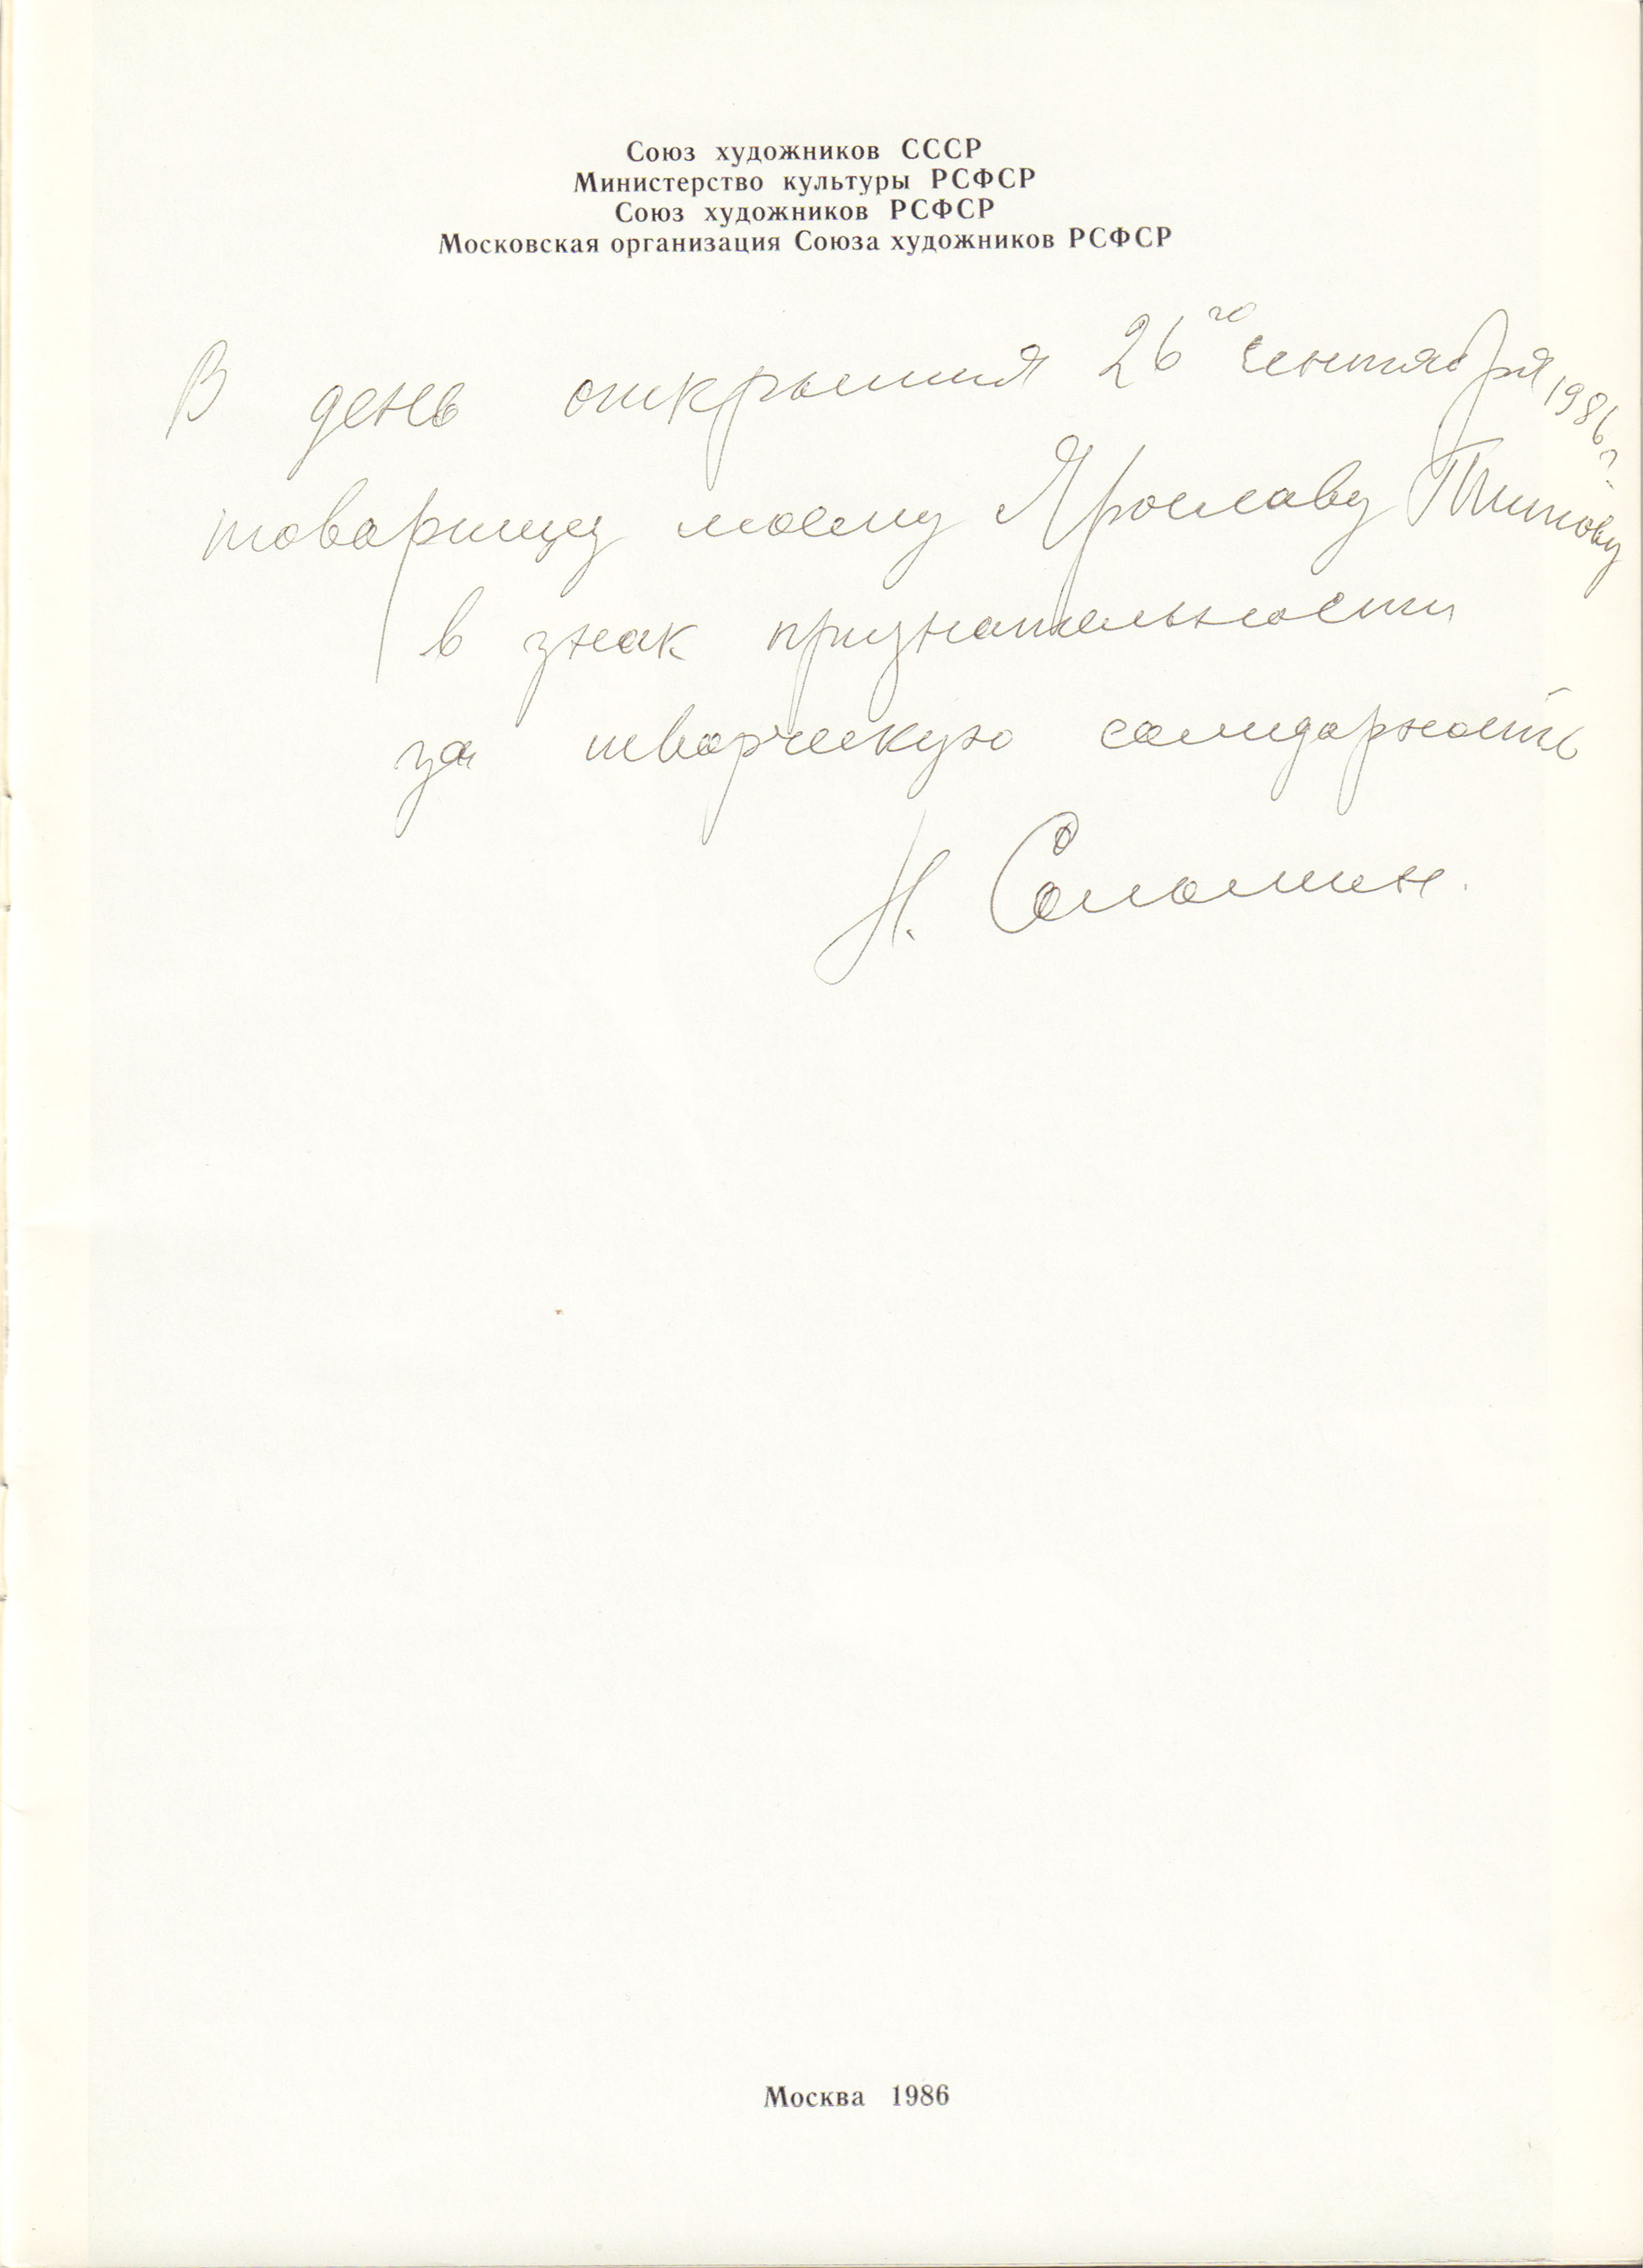 Союз художников СССР
Министерство культуры РСФСР
Союз художников РСФСР
Московская организация Союза художников РСФСР
В день открытия 26го сентября 1986 г.
товарищу моему Ярославу Титову
в знак признательности
за творческую солидарность
Н. Соломин.
Москва 1986